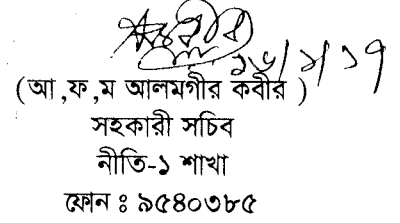 (আ,ফ,ম আলমগীর কবীর)
সহকারী সচিব
নীতি-১ শাখা
ফোন ঃ ৯৫৪০৩৮৫